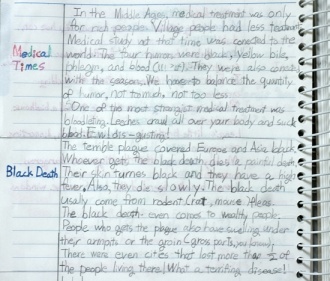 In the Middle Ages, medical treatment was only
for rich people. Village people had less treatment.
Medical study at that time was connected to the
world. The four humors were black, yellow bile,
phlegm, and blood. They were also connect
with the season. We have to balance the quantity
of humor, not too much, not too less.
One of the most strangist medical treatment was
bloodleting. Leeches crawl all over your body and suck
blood. Ew! dis-gusting!
Medical
Times
The plague covered Europe and Asia, black.
Whoever gets the black death dies in painful death.
Black Death
Their skin turnes black and they have a high
fever. Also, they die slowly. The black death
usally come from rodent (rat, mouse) fleas.
The black death even comes to wealty people.
People who gets the plague also have swelling under
their armpits or the groin (gross parts,
There were even cities that lost more than ½ of
the people living there! What a terrifing disease!